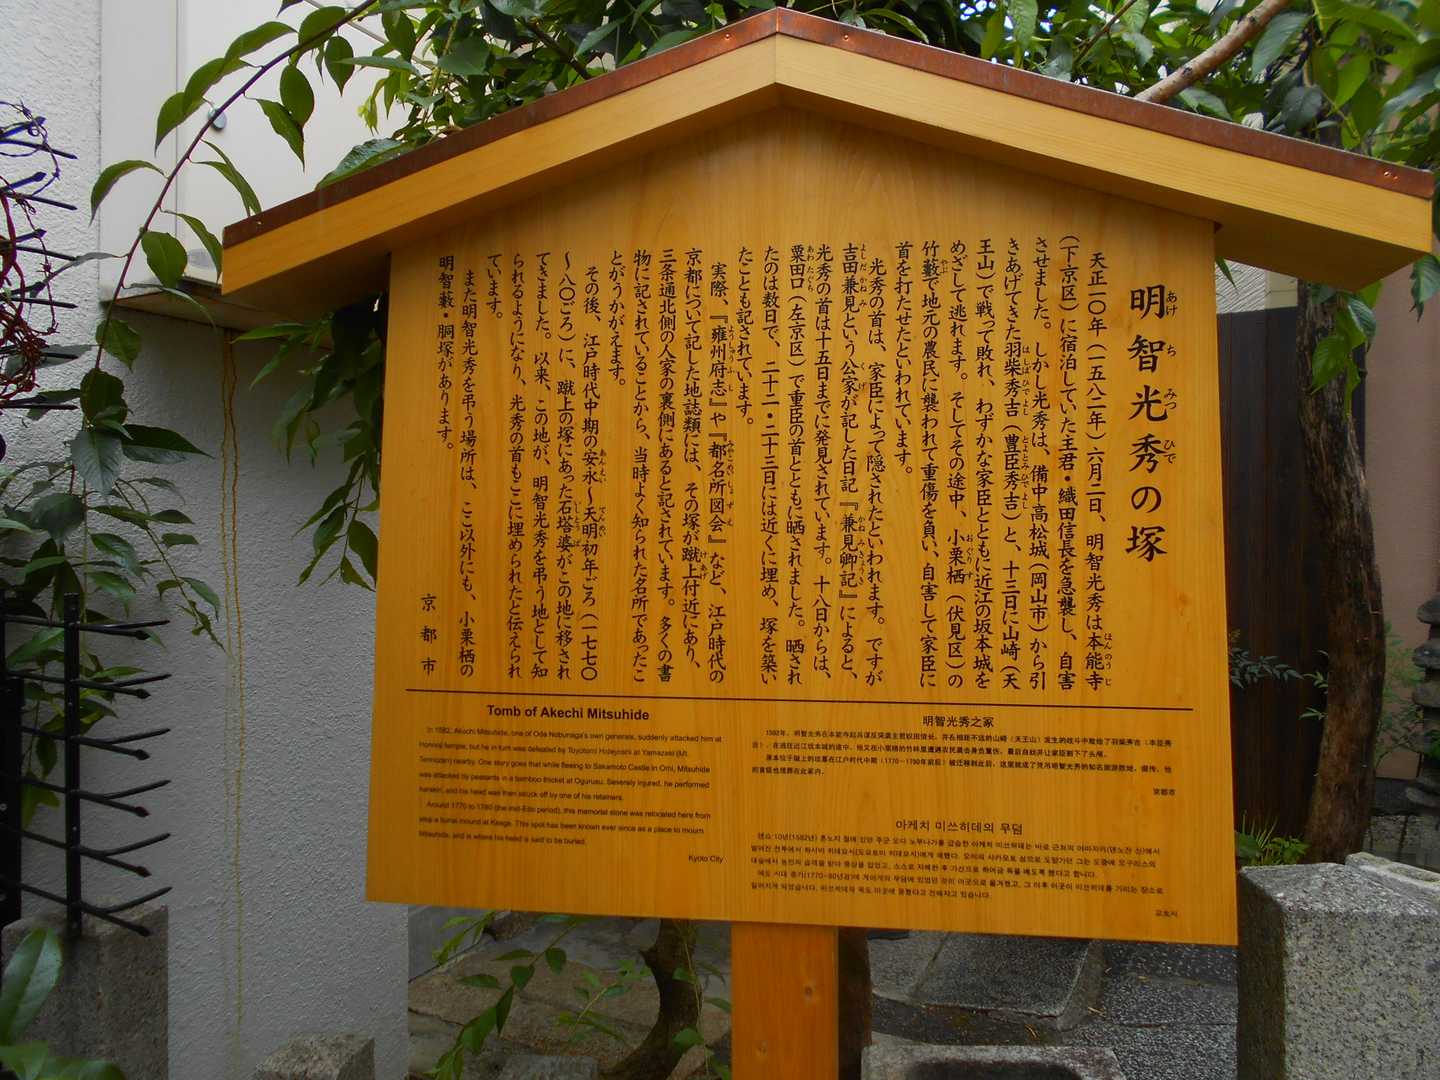 明智光秀の塚
天正一〇年（一五八二年）六月二日、明智光秀は本能寺
（下京区）に宿泊していた主君・織田信長を急襲し、自害
させました。しかし光秀は、備中高松城（岡山市）から引
きあげてきた羽柴秀吉（豊臣秀吉）と、十三日に山崎（天
王山）で戦って敗れ、わずかな家臣とともに近江の坂本城を
めざして逃れます。そしてその途中、小栗栖（伏見区）の
竹藪で地元の農民に襲われて重傷を負い、自害して家臣に
首を打たせたといわれています。
光秀の首は、家臣によって隠されたといわれます。ですが
吉田兼見という公家が記した日記『兼見卿記』によると、
光秀の首は十五日までに発見されています。十八日からは、
粟田口（左京区）で重臣の首とともに晒されました。晒され
たのは数日で、二十二・二十三日には近くに埋め、塚を築い
たことも記されています。
実際、『雍州府志』や『都名所図会』など、江戸時代の
京都について記した地誌類には、その塚が蹴上付近にあり、
三条通北側の人家の裏側にあると記されています。多くの書
物に記されていることから、当時よく知られた名所であったこ
とがうかがえます。
その後、江戸時代中期の安永〜天明初年ごろ（一七七〇
〜八〇ごろ）に、蹴上の塚にあった石塔婆がこの地に移され
てきました。以来、この地が、明智光秀を弔う地として知
られるようになり、光秀の首もここに埋められたと伝えられ
ています。
また明智光秀を弔う場所は、ここ以外にも、小栗栖の
明智藪・胴塚があります。
京都市
Tomb of Akechi Mitsuhide
In 1582, Akechi Mitsuhide, one of Oda Nobunaga's own generals, suddenly attacked him at
Honnoji temple, but he in turn was defeated by Toyotomi Hideyoshi at Yamazaki (Mt.
Tennozan) nearby. One story goes that while fleeing to Sakamoto Castle in Omi, Mitsuhide
was attacked by peasants in a bamboo thicket at Ogurusu. Severely injured, he performed
harakiri, and his head was then struck off by one of his retainers.
Around 1770 to 1780 (the mid-Edo period), this memorial stone was relocated here from
atop a burial mound at Keage. This spot has been known ever since as a place to mourn
Mitsuhide, and is where his head is said to be buried.
Kyoto City
明智光秀之冢
京都市
아케치 미쓰히데의 무덤
교토시